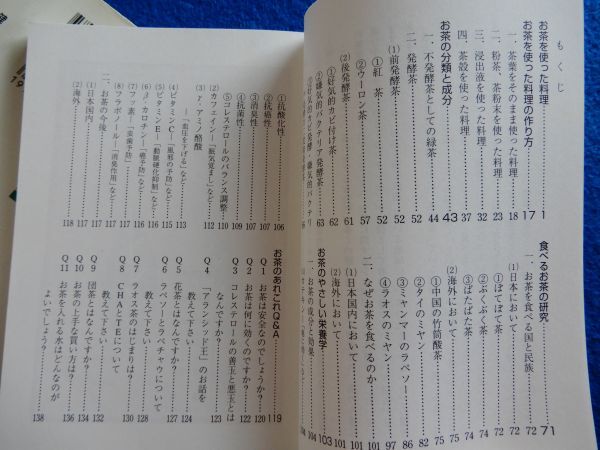 もくじ
お茶を使った料理……1
お茶を使った料理の作り方……17
一、茶葉をそのまま使った料理……18
二、粉茶、茶粉末を使った料理……23
三、浸出液を使った料理……32
四、茶殻を使った料理……37
お茶の分類と成分……43
一、不発酵茶としての緑茶……44
二、発酵茶……52
(1)前発酵茶……52
①紅茶……52
②ウーロン茶……57
(2)後発酵茶……61
①好気的カビ付け茶……62
②嫌気的バクテリア発酵茶……63
食べるお茶の研究……71
一、お茶を食べる国と民族……72
(1)日本において……72
①ぼてぼて茶……72
②ぶくぶく茶……74
③ばたばた茶……75
(2)海外において……75
①中国の竹筒酸茶……75
②タイのミヤン……82
③ミャンマーのラペソー……86
④ラオスのミヤン……97
二、なぜお茶を食べるのか……101
(1)日本国内において……101
(2)海外において……101
お茶のやさしい栄養学……103
一、お茶の成分と効果……104
①抗酸化性……106
②抗癌性……107
③消臭性……109
④抗菌性……109
⑤コレステロールのバランス調整……110
(2)カフェイン―「眠気覚まし」など―……112
(3)γ・アミノ酪酸
―「血圧を下げる」など―……113
(4)ビタミンC―「風邪の予防」など―……115
(5)ビタミンE―「動脈硬化抑制」など―……116
(6)β・カロチン―「癌予防」など―……116
(7)フッ素―「歯予防」など―……116
(8)フラボノール―「消臭作用」など―……117
二、お茶の今後……117
(1)日本国内……117
(2)海外……118
お茶のあれこれQ&A……119
Q1 お茶は安全なのでしょうか?……120
Q2 お茶は何に効くのですか?……122
Q3 コレステロールの善玉と悪玉とは
なんですか?……123
Q4 「アランシッド王」のお話を
教えて下さい……124
Q5 花茶とはなんですか?……127
Q6 ラペソーとラペチャウについて
教えて下さい……128
Q7 ラオス茶のはじまりは?……130
Q8 CHAとTEについて
教えて下さい……132
Q9 団茶とはなんですか?……134
Q10 お茶の上手な買い方は?……136
Q11 お茶を入れる水はどんなのが
よいでしょう?……138